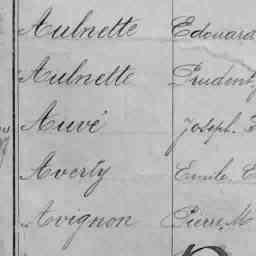 Aubnette Edouard
Aubnette Prudent
Auvé Joseph
Averty Emile
Avignon Pierre M